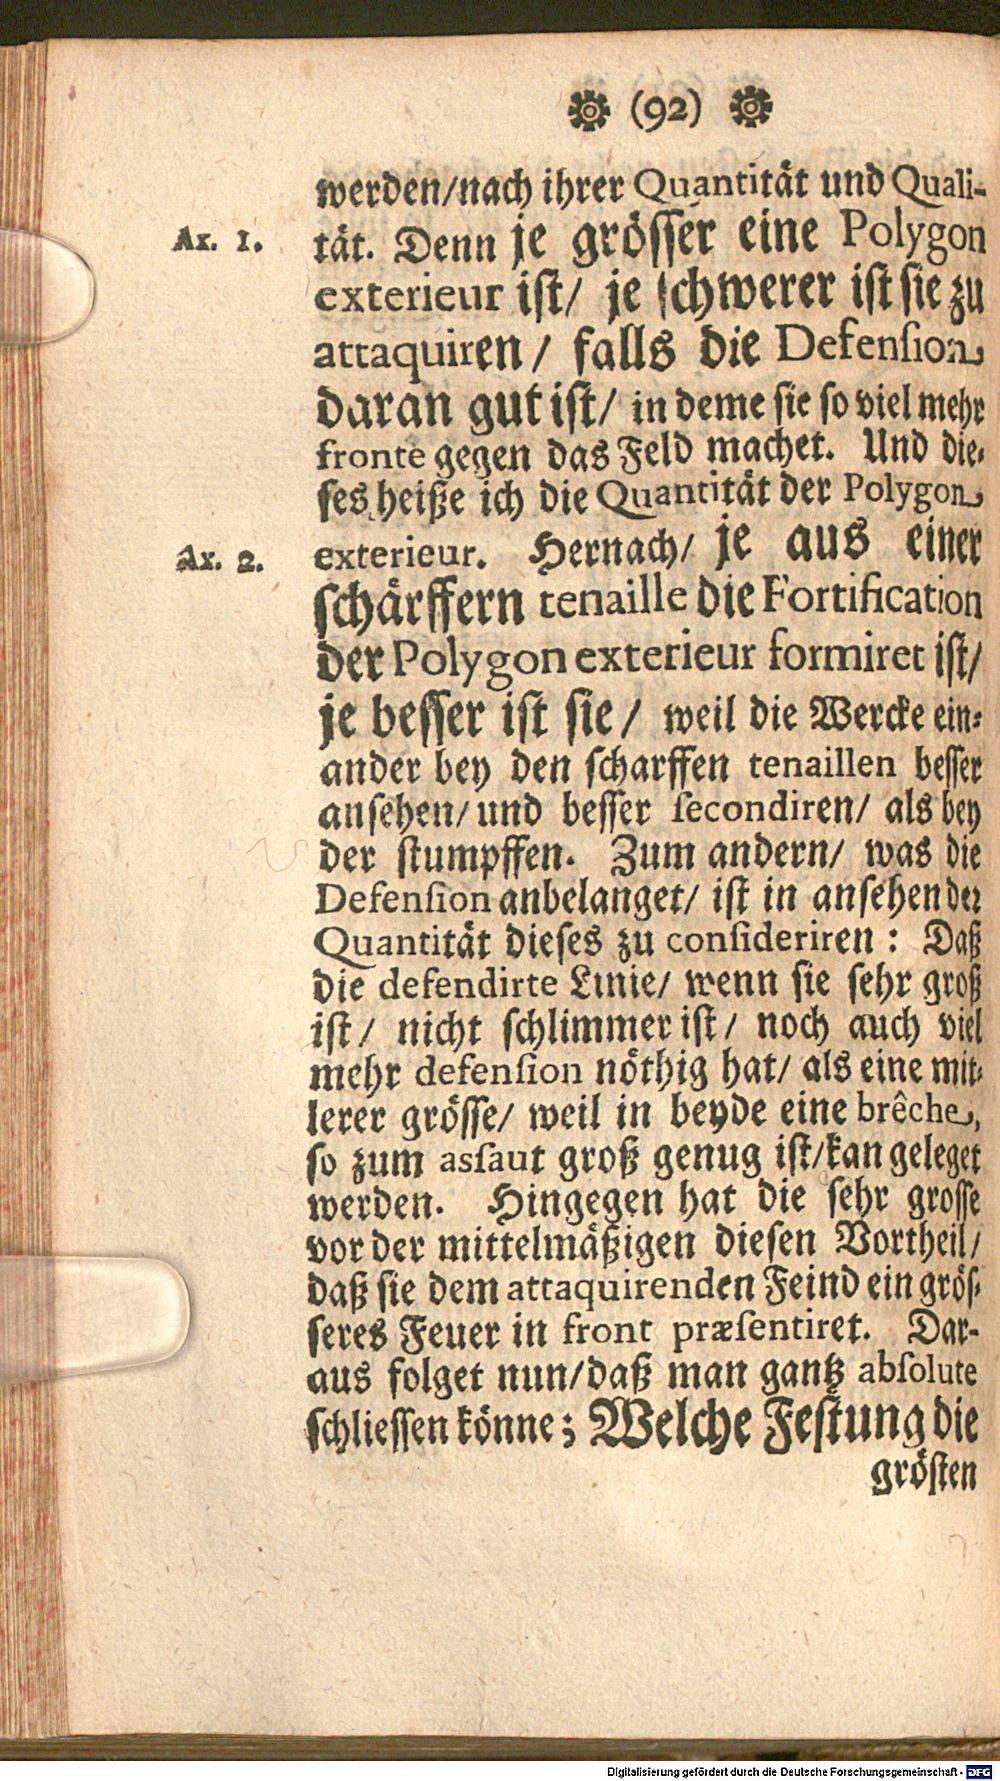 (92)
werden/nach ihrer Quantität und Quali-
Ax. 1.
tät. Denn je grösser eine Polygon
exterieur ist/ je schwerer ist sie zu
attaquiren / falls die Defension
daran gut ist/ in deme sie so viel mehr
fronte gegen das Feld machet. Und die-
ses heiße ich die Quantität der Polygon
Ax. 2.
exterieur. Hernach/ je aus einer
schärffern tenaille die Fortification
der Polygon exterieur formiret ist/
je besser ist sie / weil die Wercke ein-
ander bey den scharffen tenaillen besser
ansehen/ und besser secondiren/ als bey
der stumpffen. Zum andern/ was die
Defension anbelanget/ ist in ansehen der
Quantität dieses zu consideriren : Daß
die defendirte Linie/ wenn sie sehr groß
ist / nicht schlimmer ist / noch auch viel
mehr defension nöthig hat/ als eine mit-
lerer grösse/ weil in beyde eine brêche,
so zum assaut groß genug ist/kan geleget
werden. Hingegen hat die sehr grosse
vor der mittelmäßigen diesen Vortheil/
daß sie dem attaquirenden Feind ein grös-
seres Feuer in front præsentiret. Dar-
aus folget nun/daß man gantz absolute
schliessen könne; Welche Festung die
grösten
Digitalisierung gefördert durch die Deutsche Forschungsgemeinschaft - DFG